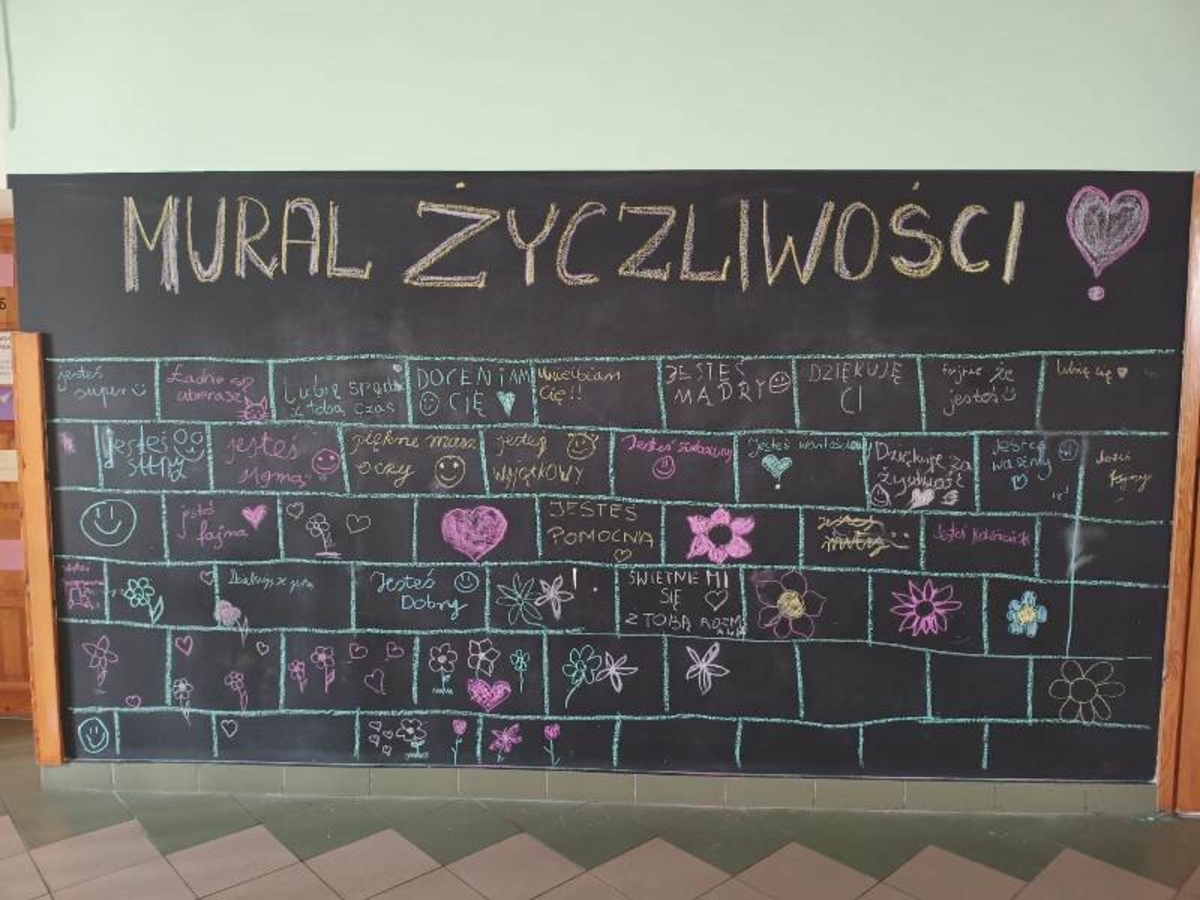 MURAL ŻYCZLIWOŚCI
jesteś
super
Ładnie się
ubierasz
Lubię spędzać
z tobą czas
DOCENIAM
CIĘ
Uwielbiam
cię!!
JESTEŚ
MĄDRY
DZIĘKUJĘ
CI
fajnie że
jesteś
lubię cię
jesteś
jesteś
piękne masz
oczy
jesteś
WYJĄTKOWY
Jesteś
Jesteś
Dziękuję za
życzliwość
Jesteś
ważny
jesteś
fajna
JESTEŚ
POMOCNA
jesteś
miły
Jesteś
Jesteś
Dobry
ŚWIETNIE MI
SIĘ
Z TOBĄ ROZM
AWIA